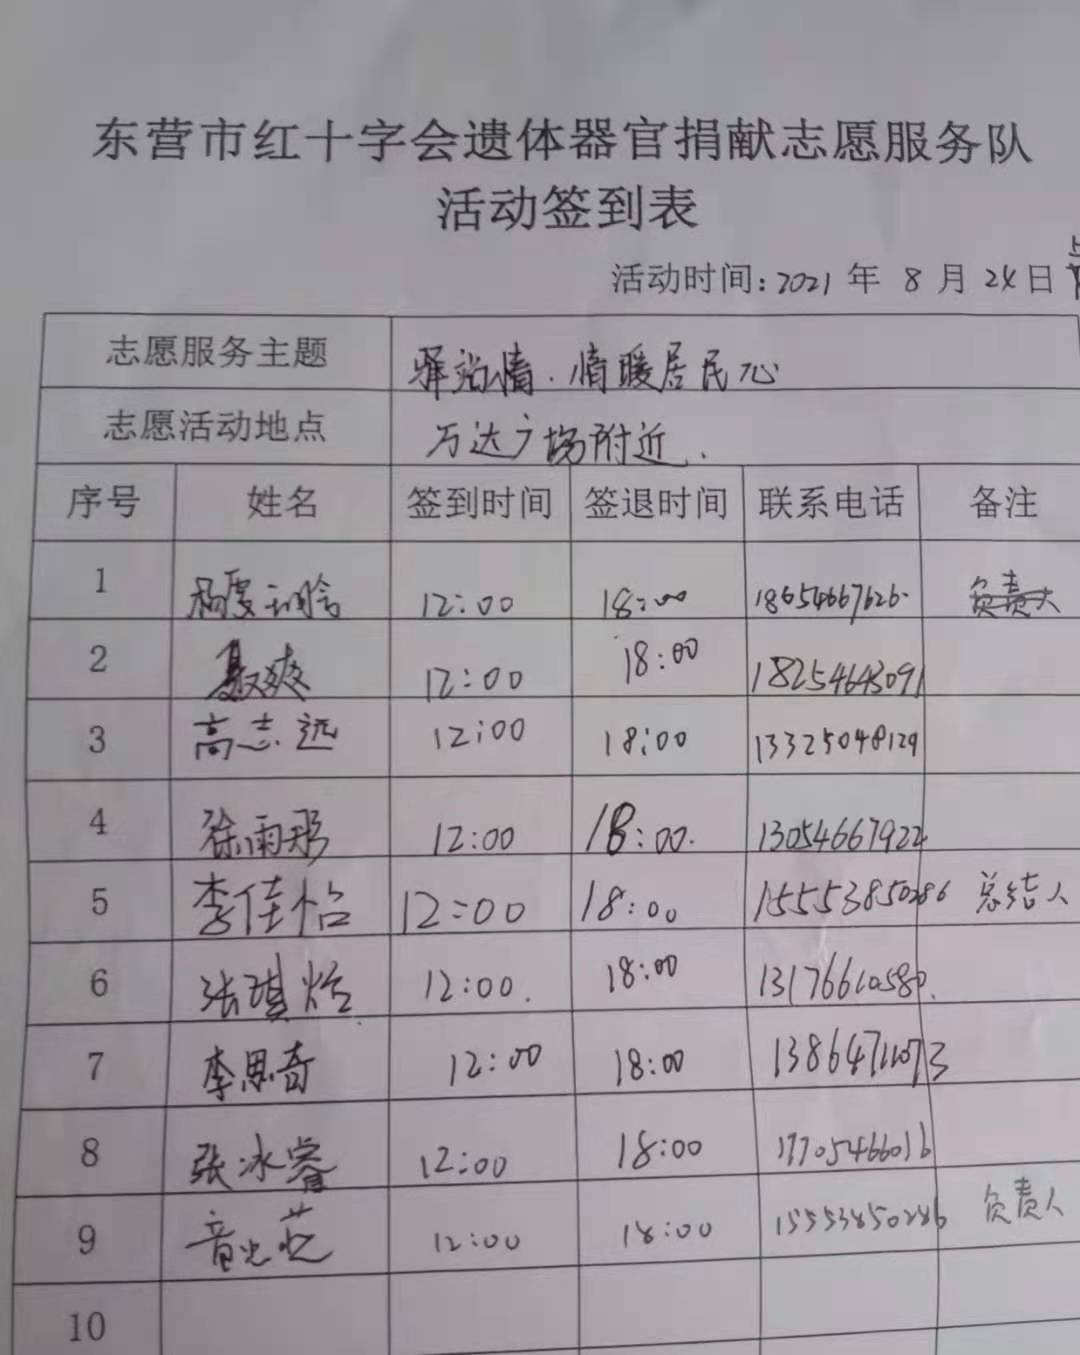 东营市红十字会遗体器官捐献志愿服务队
活动签到表
活动时间:2021 年 8 月 24日
志愿服务主题 驿站情.情暖居民心
志愿活动地点 万达广场附近.
序号 姓名 签到时间 签退时间 联系电话 备注
1 12:00 18:00 18654667626 负责人
2 聂爽 12:00 18:00 18254643091
3 高志远 12:00 18:00 13325048129
4 徐雨彤 12:00 18:00. 13054667922
5 李佳怡 12:00 18:00 15553850286 总结人
6 张琪 12:00. 18:00 13176610580.
7 李思奇 12:00 18:00
8 张冰睿 12:00 18:00 17705466016
9 12:00 18:00 15553850286 负责人
10